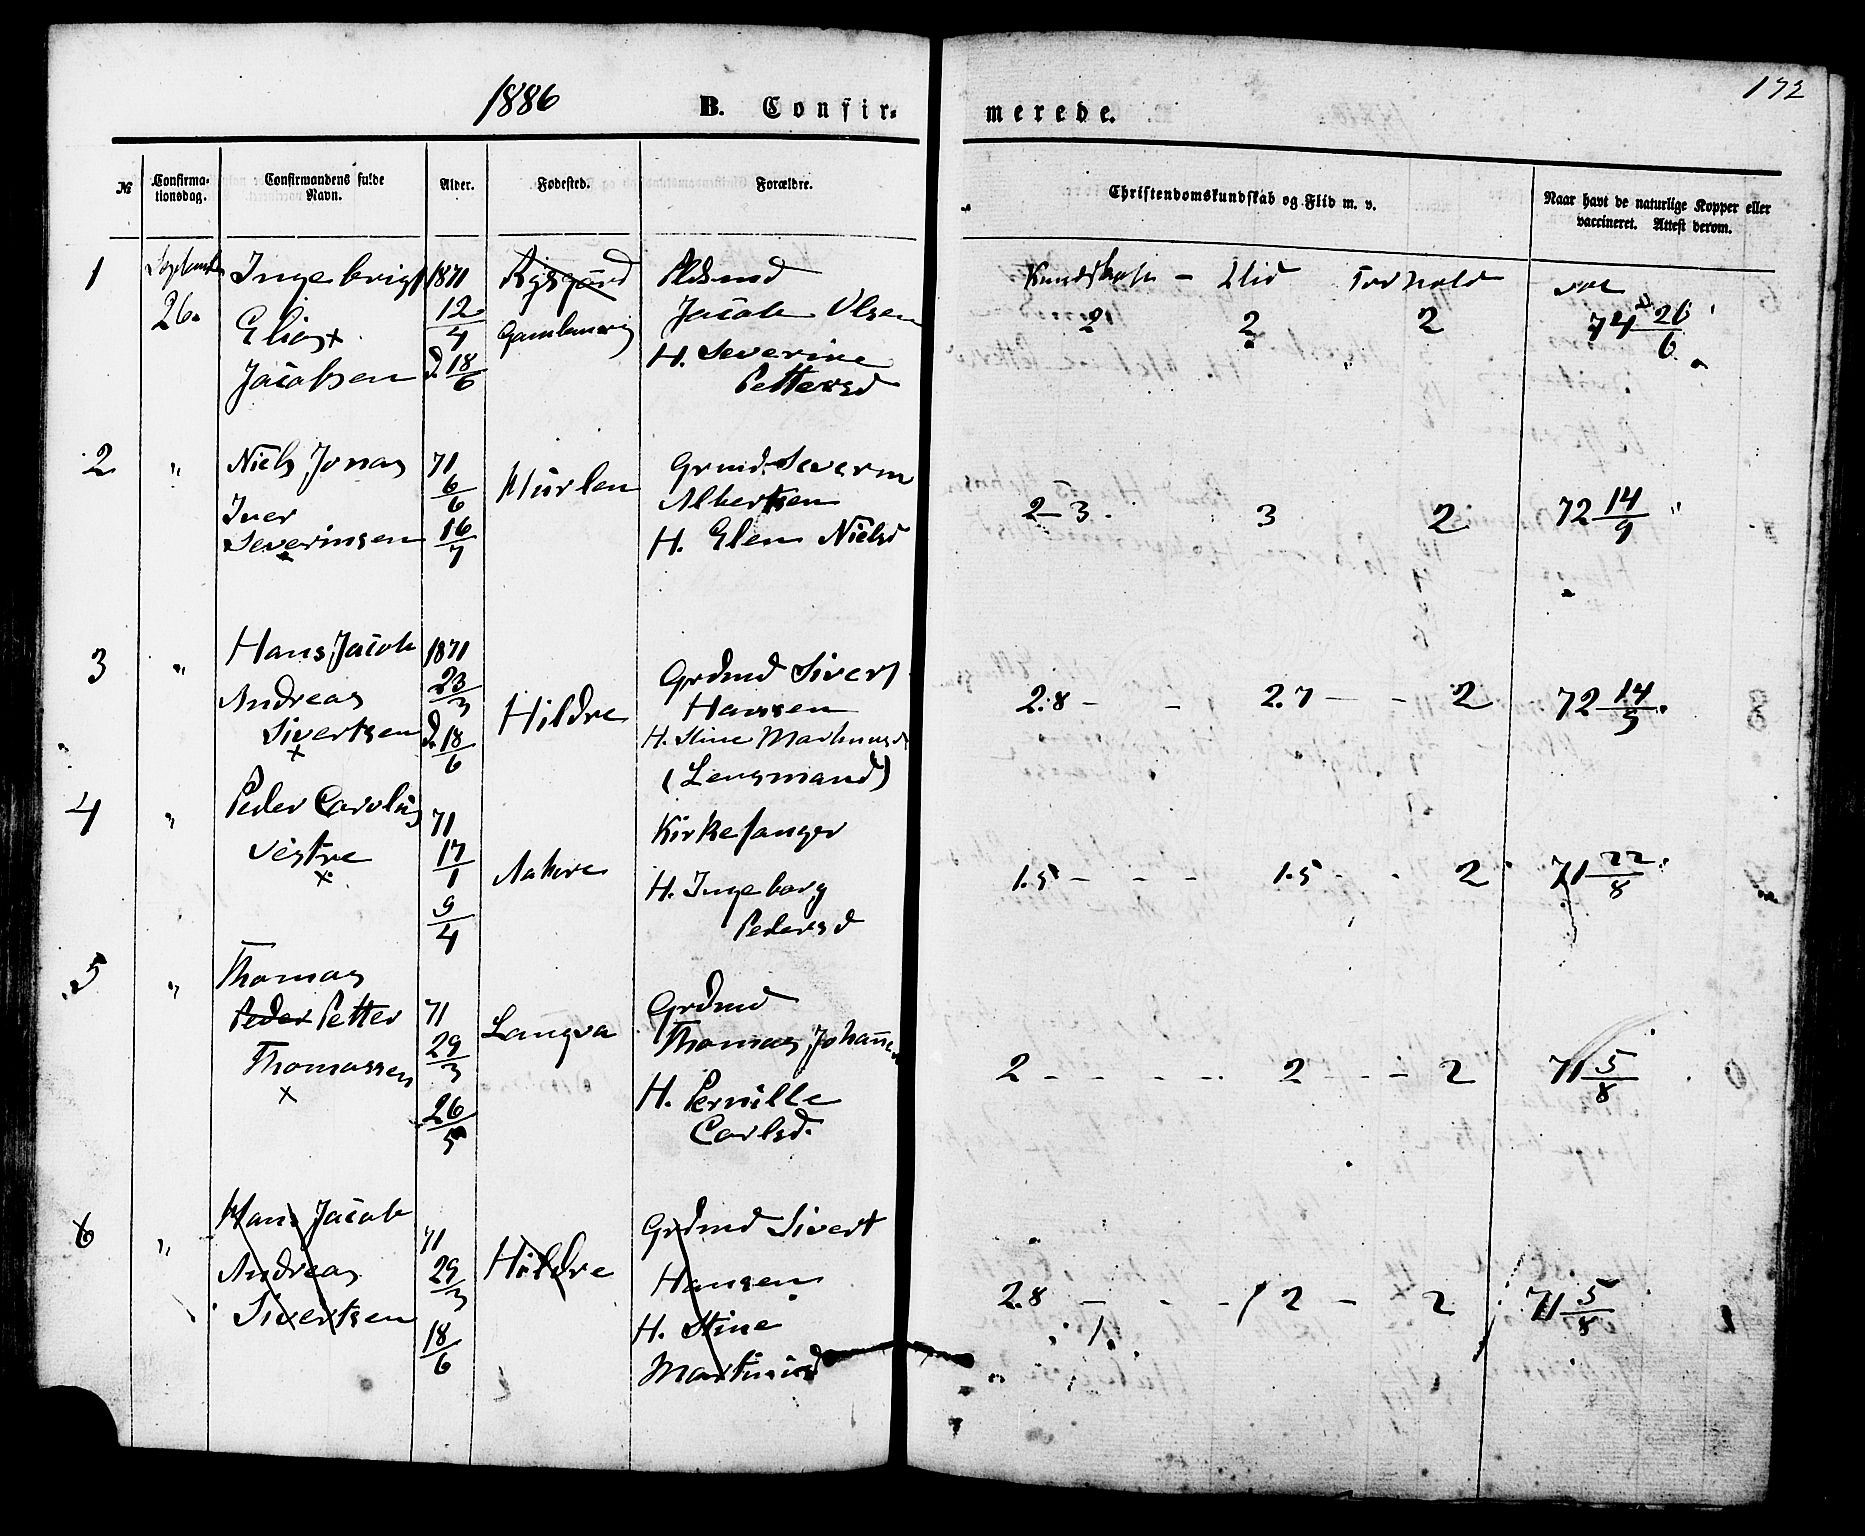 1886
B. Confir-
merede.
172
№
Confirma-
tionsdag.
Confirmandens fulde
Navn.
Alder.
Fødested.
Forældre.
Christendomskundskab og Flid m. v.
Naar havt de naturlige Kopper eller
vaccineret. Attest derom.
1
26.
Ingebrigt
Elias x
Jacobsen
1871
12/4
d. 18/6
Jacob Olsen
H. Severine
Pettersd
Kundskab - Flid Forhold
2 2 2
74 26/6
2
"
Niels Jonas
Iver
Severinsen
71
6/6
16/7
Severin
Albertsen
H. Elen Nielsd
2-3 3 2
72 14/9
3
"
Hans Jacob
Andreas
Sivertsen
x
1871
23/3
d. 18/6
Hildre
Grdmd Sivert
Hanssen
H. Stine
(Lensmand)
2.8 - - 2.7 - - 2
72 14/9
4
"
Peder Carolus
Vestre
x
71
17/1
9/4
Kirkesanger
H. Ingeborg
Pedersd
1.5 - - - 1.5 - - 2
71 22/8
5
"
Thomas
Peder Petter
Thomassen
x
71
29/3
26/5
Longva
Grdmd
Thomas
H. Pernille
Carlsd.
2 - - - - 2 - - 2
71 5/8
6
"
Hans Jacob
Andreas
Sivertsen
71
29/3
18/6
Hildre
Grdmd Sivert
Hansen
H. Stine
Martinusd
2.8 - - - 2 - 2
71 5/8